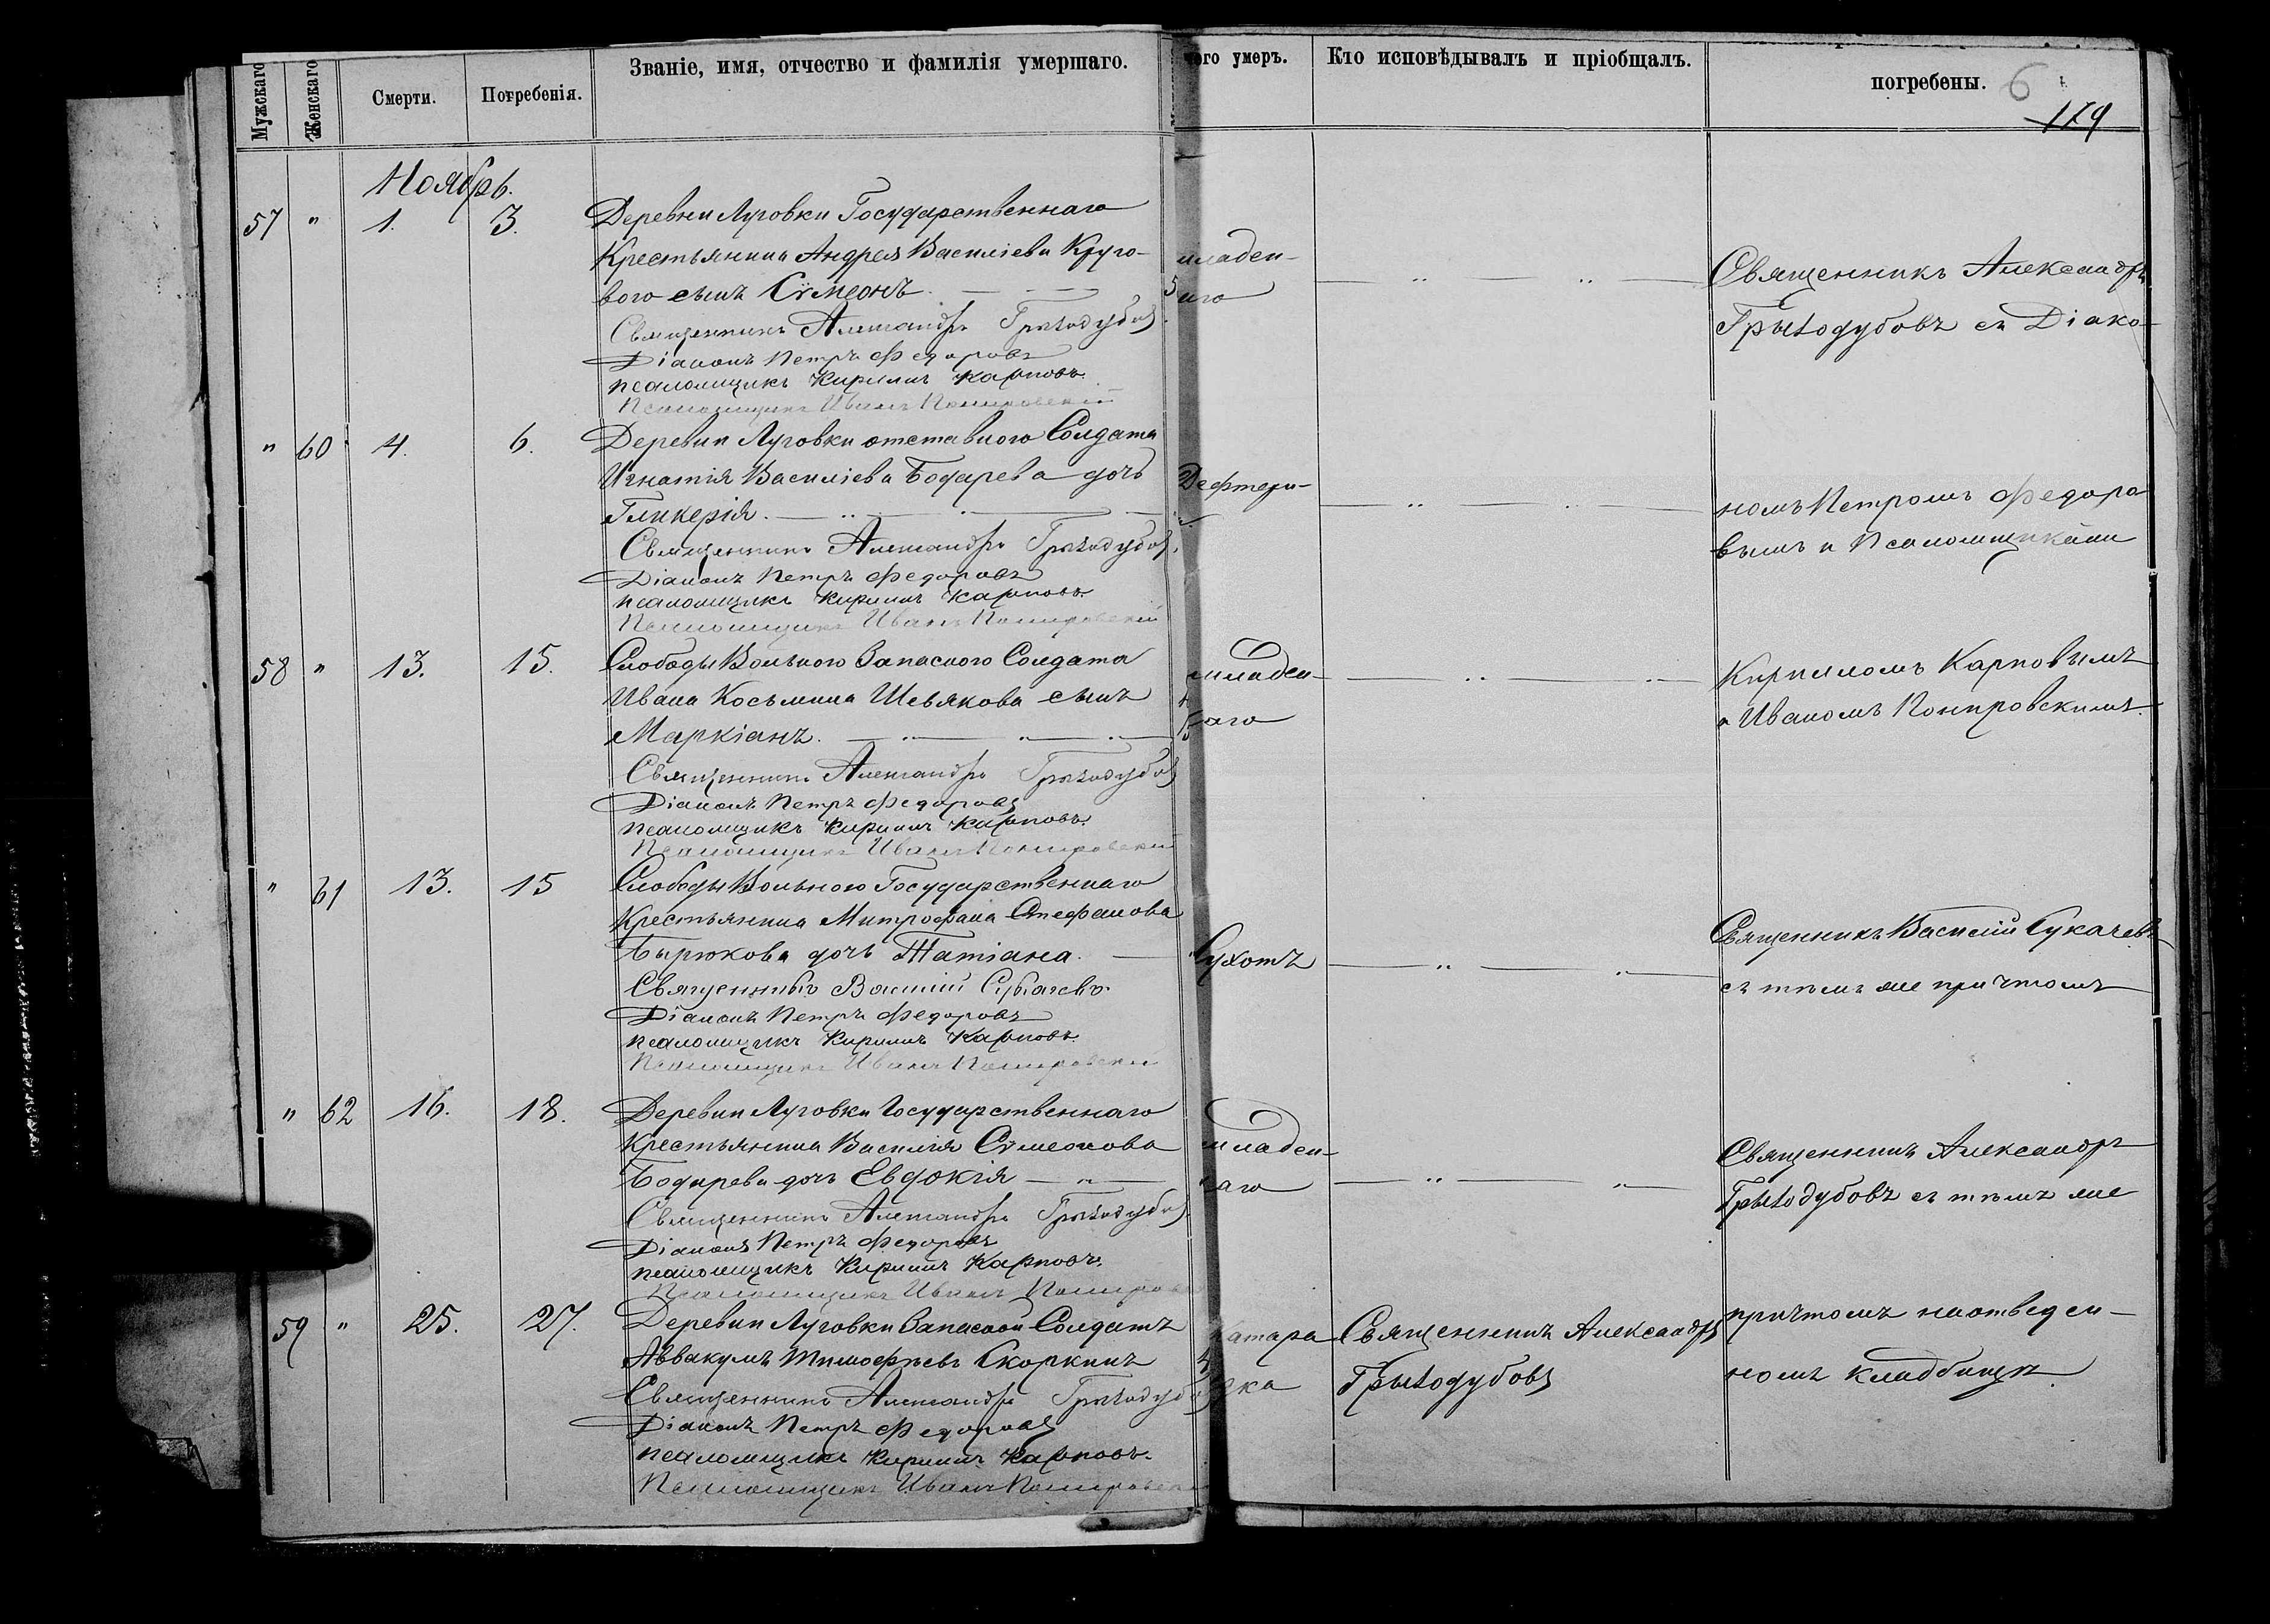 Мужскаго
Женскаго
Смерти.
Погребенія.
Званіе, имя, отчество и фамилія умершаго.
чего умеръ.
Кто исповѣдывалъ и пріобщалъ.
погребены.
6
179
Ноябрь.
57 " 1. 3.
Деревни Луговки Государственнаго
Крестьянина Андрея Василіева Круго-
вого сынъ Сѵмеонъ.
Священникъ Александръ Грызодубовъ
Діаконъ Петръ Федоровъ
псаломщикъ Кириллъ Карповъ.
Псаломщикъ Иванъ Понировскій
младен-
наго
Священникъ Александръ
Грызодубовъ съ Діако-
" 60 4. 6.
Деревни Луговки отставного Солдата
Игнатія Василіева Бодарева дочь
Гликерія.
Священникъ Александръ Грызодубовъ
Діаконъ Петръ Федоровъ
псаломщикъ Кириллъ Карповъ.
Псаломщикъ Иванъ Понировскій
Дефтери-
номъ Петромъ Федоро
вымъ и Псаломщиками
58 " 13. 15.
Слободы Вольного Запасного Солдата
Ивана Косьмина Шевякова сынъ
Маркіанъ.
Священникъ Александръ Грызодубовъ
Діаконъ Петръ Федоровъ
псаломщикъ Кириллъ Карповъ.
Псаломщикъ Иванъ Понировскій
младен-
наго
Кирилломъ Карповымъ
и Иваномъ Понировскимъ.
" 61 13. 15
Слободы Вольного Государственнаго
Крестьянина Митрофана Стефанова
Бырюкова дочь Татіана.
Священникъ Василій Сукачевъ.
Діаконъ Петръ Федоровъ
псаломщикъ Кириллъ Карповъ.
Псаломщикъ Иванъ Понировскій
Сухотъ
Священникъ Василій Сукачевъ
съ тѣмъ же причтомъ
" 62 16. 18.
Деревни Луговки Государственнаго
Крестьянина Василія Сѵмеонова
Бодарева дочь Евдокія
Священникъ Александръ Грызодубовъ
Діаконъ Петръ Федоровъ
псаломщикъ Кириллъ Карповъ.
Псаломщикъ Иванъ Понировскій
младен-
наго
Священникъ Александръ
Грызодубовъ съ тѣмъ же
59 " 25. 27.
Деревни Луговки Запасной Солдатъ
Аввакумъ Тимофѣевъ Скоркинъ
Священникъ Александръ Грызодубовъ
Діаконъ Петръ Федоровъ
псаломщикъ Кириллъ Карповъ.
Псаломщикъ Иванъ Понировскій
Священникъ Александръ
Грызодубовъ
причтомъ на отведен-
номъ кладбищѣ.